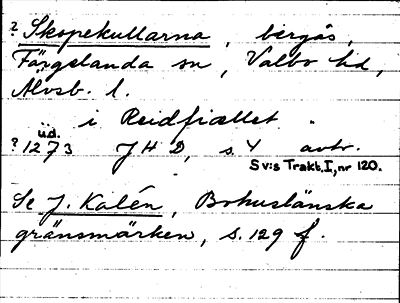 ? Skopekullarna, bergås,
Färgelanda sn, Valbo hd,
Älvsb. l.
i Reidfiællet.
?1273 u.d. JHD, s. 4 avtr.
Sv:s Trakt. I, nr 120.
Se J. Kalén, Bohuslänska
gränsmärken, s. 129 f.